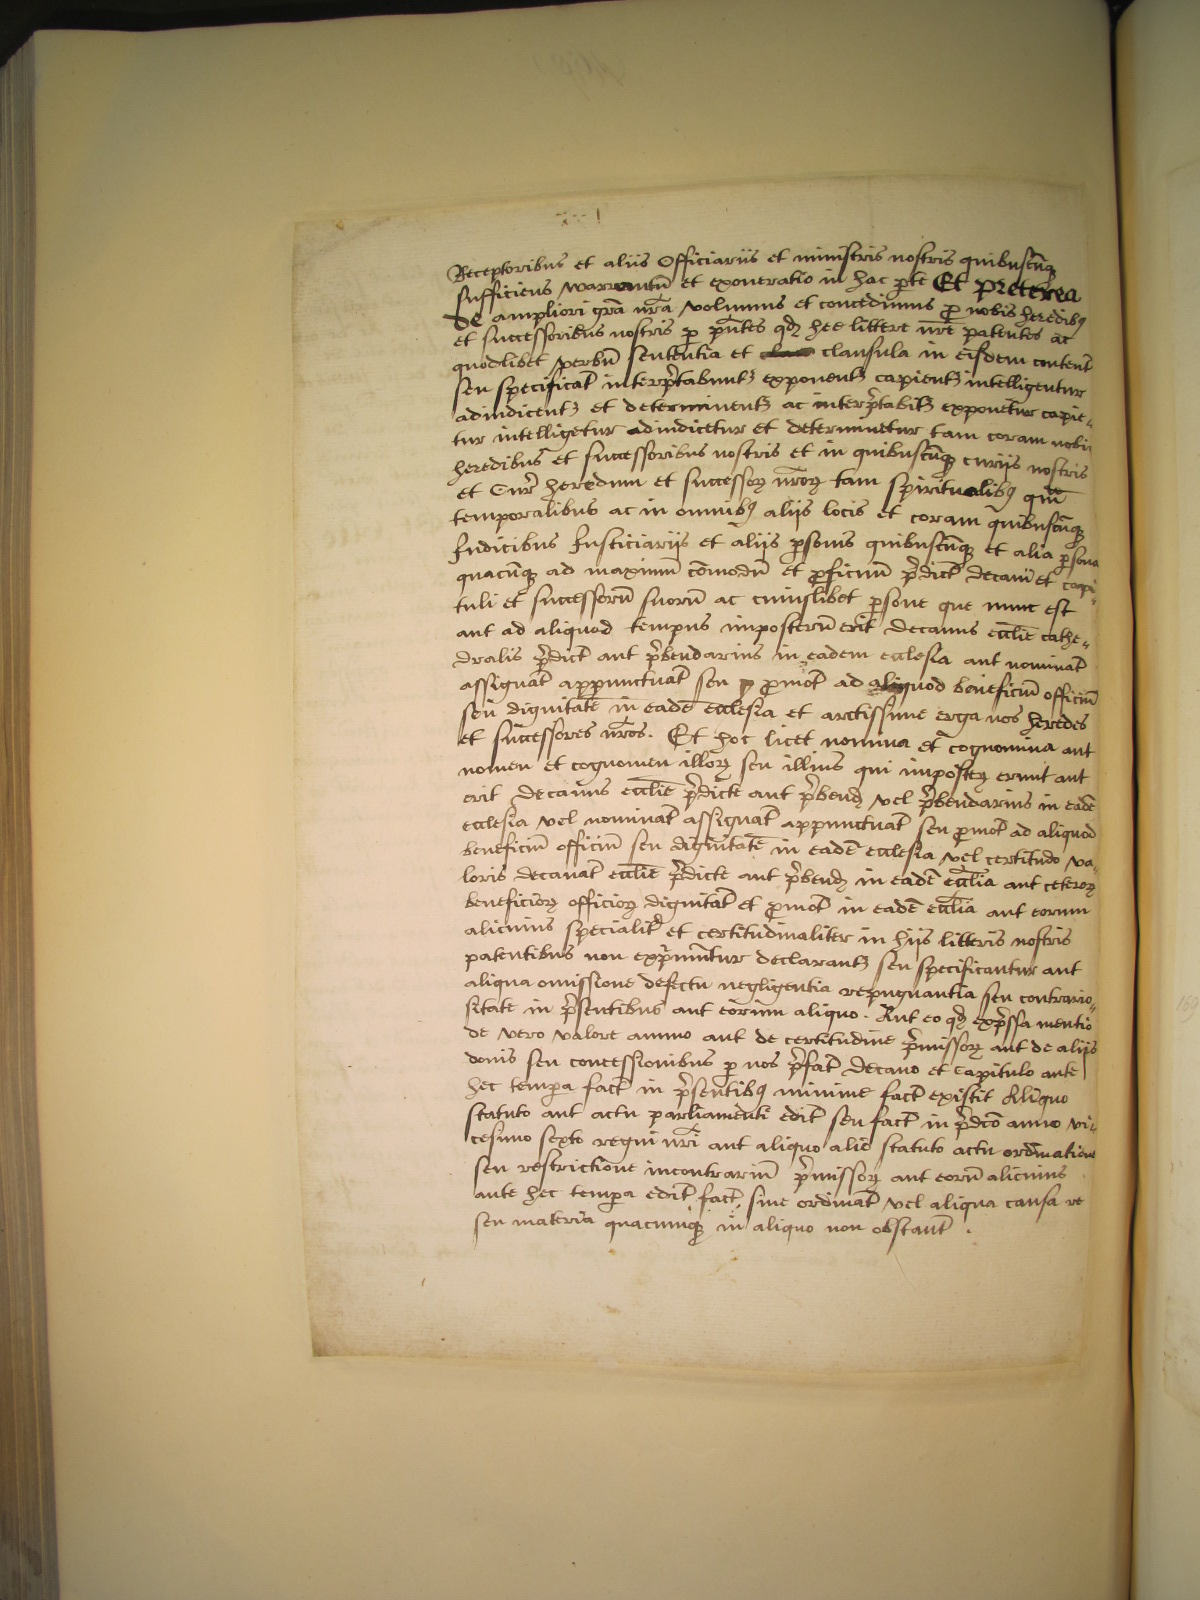 Receptoribus et aliis Officiariis et ministris nostris quibuscūq
sufficiens warrantū et exoneratio in hac p̱te Et preterea
de ampliori gr̄a nr̄a volumus et concedimus p̱ nobis heredibȝ
et successoribus nostris p̱ pn̄tes qđ hee littere nr̄e patentes ac
quodlibet verbū sententia et clausula in eisdem content̄
seu specificat̄ interp̄tabunt exponent capient intelligentur
adiudicent et determinent ac interp̄tabit exponetur capie-
tur intelligetur adiudicetur et determinetur tam coram nobis
heredibus et successoribus nostris et in quibuscūq curiis nostris
et Cur̄ heredum et successoꝝ nr̄oꝝ tam spiritualibȝ qm̄
temporalibus ac in omnibȝ aliis locis et coram quibuscūq
Iudicibus Iusticiariis et aliis p̱sonis quibuscūq et alia p̱sona
quacūq ad maximū cōmodū et p̱ficuū p̄dict̄ decani et capi-
tuli et successorū suorū ac cuiuslibet p̱sone que nunc est
aut ad aliquod tempus imposterū erit decanus eccl̄ie cathe-
dralis p̄dict̄ aut p̄bendarius in eadem ecclesia aut nominat̄
assignat̄ appunctuat̄ seu p̱mot̄ ad aliquod beneficiū officiū
seu dignitatē in eadē ecclesia et arctissime erga nos heredes
et successores nr̄os. Et hoc licet nomina et cognomina aut
nomen et cognomen illoꝝ seu illius qui imposteꝝ erunt aut
erit decanus eccl̄ie p̄dicte aut p̄bend vel p̄bendarius in eadē
ecclesia vel nominat̄ assignat̄ appunctuat̄ seu p̱mot̄ ad aliquod
beneficiū officiū seu dignitatē in eadē ecclesia vel certitudo va-
loris decanat̄ eccl̄ie p̄dicte aut p̄bend in eadē eccl̄ia aut ceteroꝝ
beneficioꝝ officioꝝ dignitat̄ et p̱mot̄ in eadē eccl̄ia aut eorum
alicuius specialit̄ et certitudinaliter in hiis litteris nostris
patentibus non exp̄muntur declarant seu specificantur aut
aliqua omissione defectu negligentia repugnantia seu contrario-
sitate in p̄sentibus aut eorum aliquo. Aut eo qđ exp̄ssa mentio
de vero valore annuo aut de certitudine p̄missoꝝ aut de aliis
donis seu concessionibus p̱ nos p̄fat̄ decano et capitulo ante
hec tempa fact̄ in p̄sentibȝ minime fact̄ existit Aliquo
statuto aut actu parliamenti edit̄ seu fact̄ in p̄dc̄o anno vi-
cesimo sexto regni nr̄i aut aliquo alio statuto actu ordinatione
seu restrictione incontrariū p̄missoꝝ aut eorū alicuius
ante hec tempa edit̄ fact̄ siue ordinat̄ vel aliqua causa re
seu materia quacumq in aliquo non obstant̄.